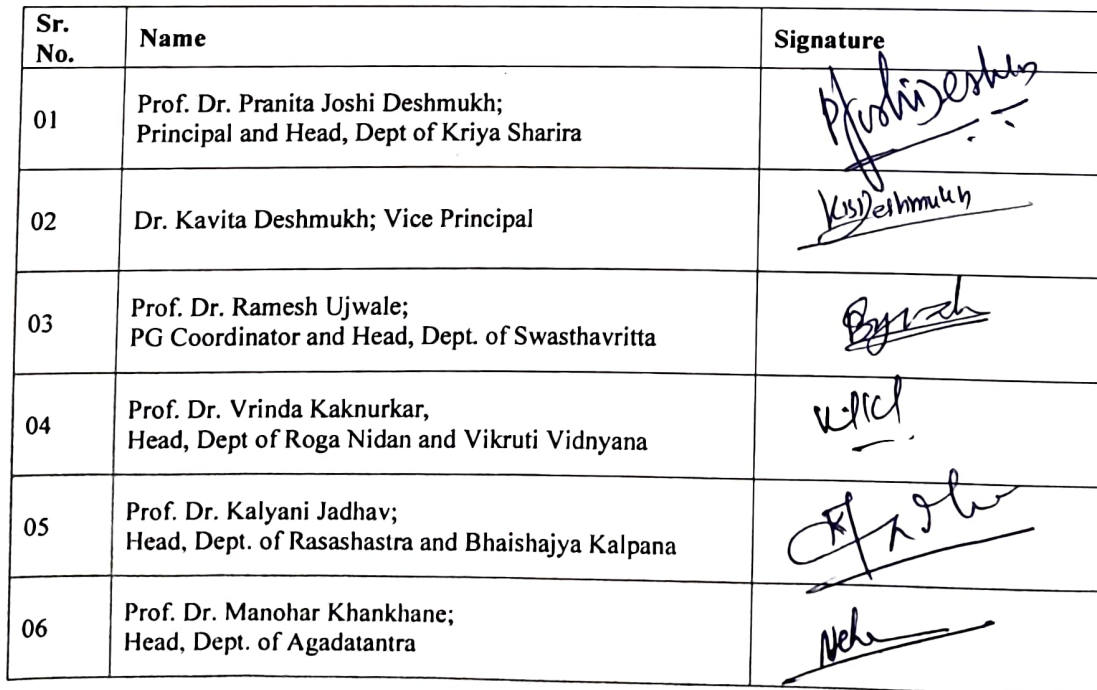 Sr. No. Name Signature
01 Prof. Dr. Pranita Joshi Deshmukh;
Principal and Head, Dept of Kriya Sharira
PJoshiDeshmukh
02 Dr. Kavita Deshmukh; Vice Principal
Deshmukh
03 Prof. Dr. Ramesh Ujwale;
PG Coordinator and Head, Dept. of Swasthavritta
04 Prof. Dr. Vrinda Kaknurkar,
Head, Dept of Roga Nidan and Vikruti Vidnyana
05 Prof. Dr. Kalyani Jadhav;
Head, Dept. of Rasashastra and Bhaishajya Kalpana
06 Prof. Dr. Manohar Khankhane;
Head, Dept. of Agadatantra